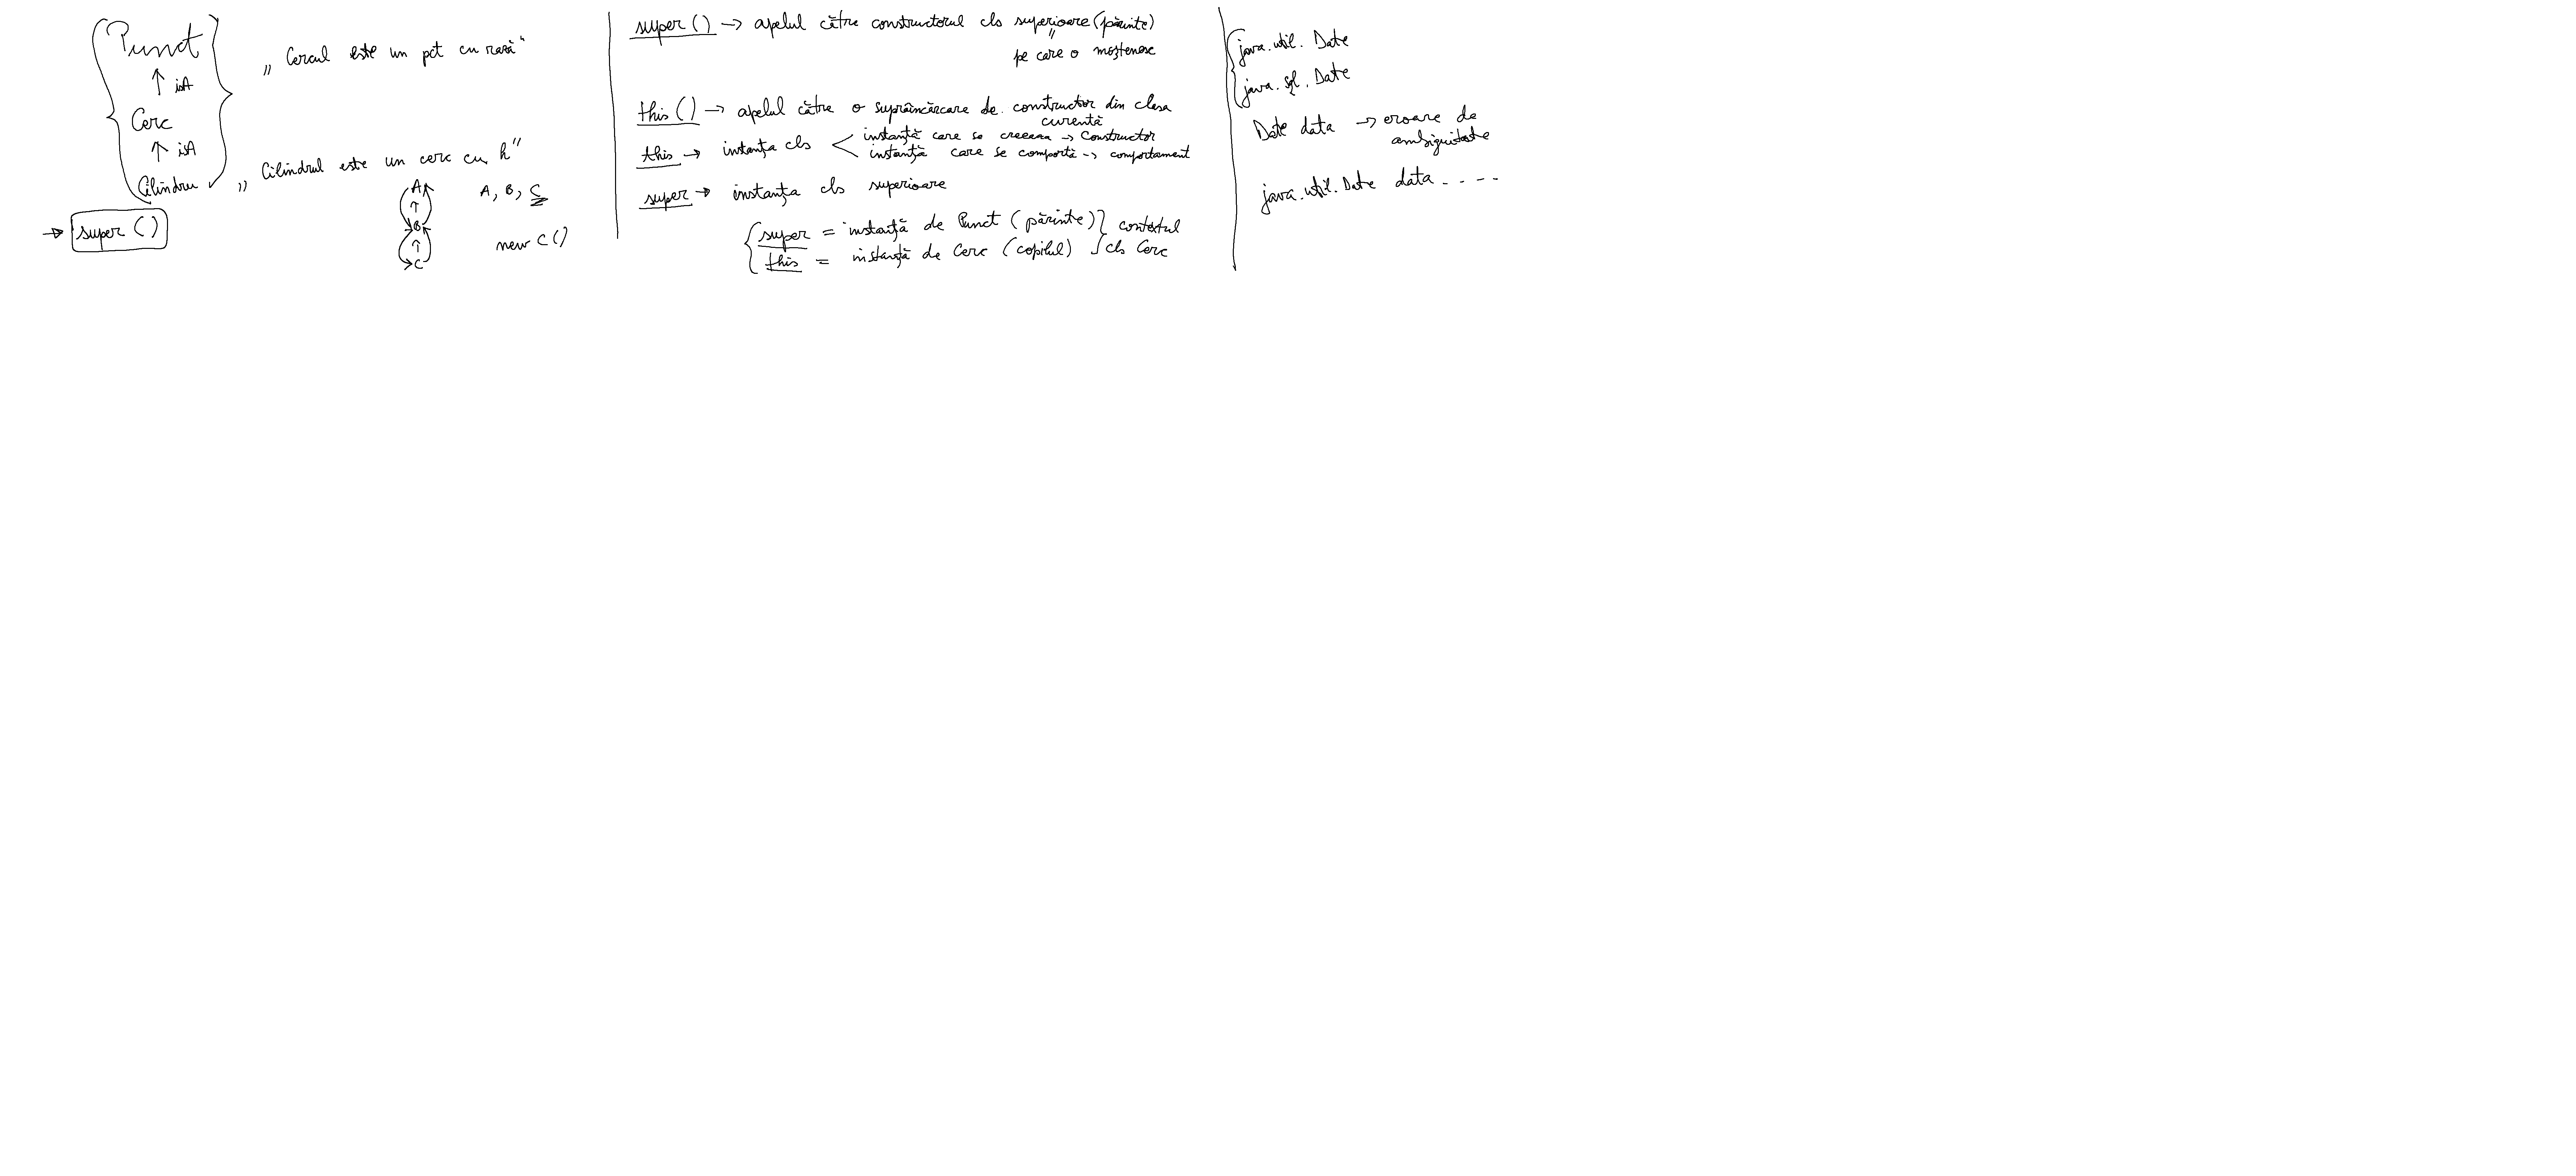 Punct
↑ isA
„Cercul este un pct cu rază"
Cerc
↑ isA
Cilindru
„Cilindrul este un cerc cu h"
→ super()
A
↑
B
↑
C
A, B, C
new C()
super() → apelul către constructorul cls superioare (părinte)
pe care o moștenesc
this() → apelul către o supraîncărcare de constructor din clasa
curentă
this → instanța cls < instanță care se creeaza → constructor
instanță care se comportă → comportament
super → instanța cls superioare
super = instanță de Punct (părinte) } contextul
this = instanță de Cerc (copilul) } cls Cerc
java.util.Date
java.sql.Date
Date data → eroare de
ambiguitate
java.util.Date data - - - -